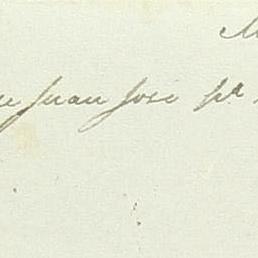 Juan José pª